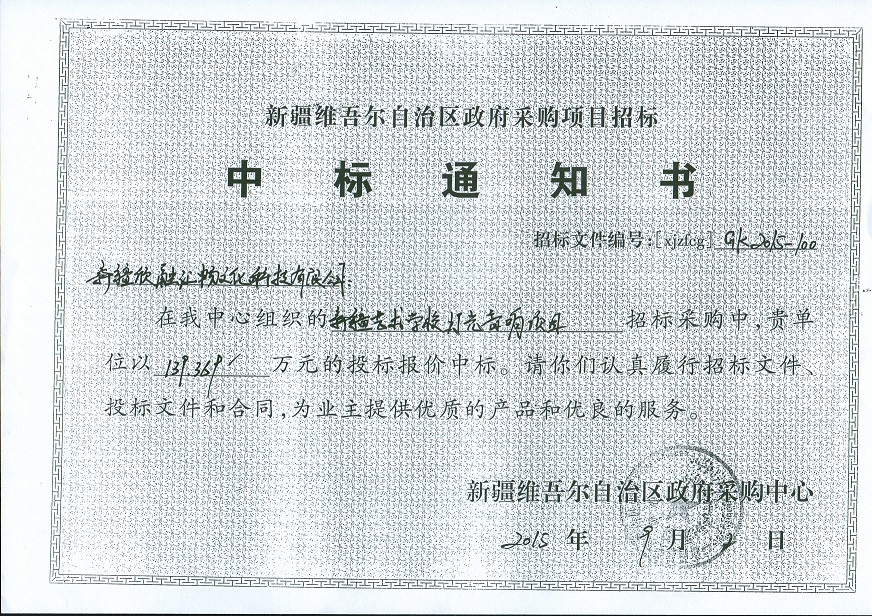 新疆维吾尔自治区政府采购项目招标
中标通知书
招标文件编号:[xjzfcg] GK2015-100
新疆欣融汇畅文化科技有限公司:
在我中心组织的新疆艺术学校灯光音响项目招标采购中,贵单
位以 139.369 万元的投标报价中标。请你们认真履行招标文件、
投标文件和合同,为业主提供优质的产品和优良的服务。
新疆维吾尔自治区政府采购中心
2015 年 9 月 2 日